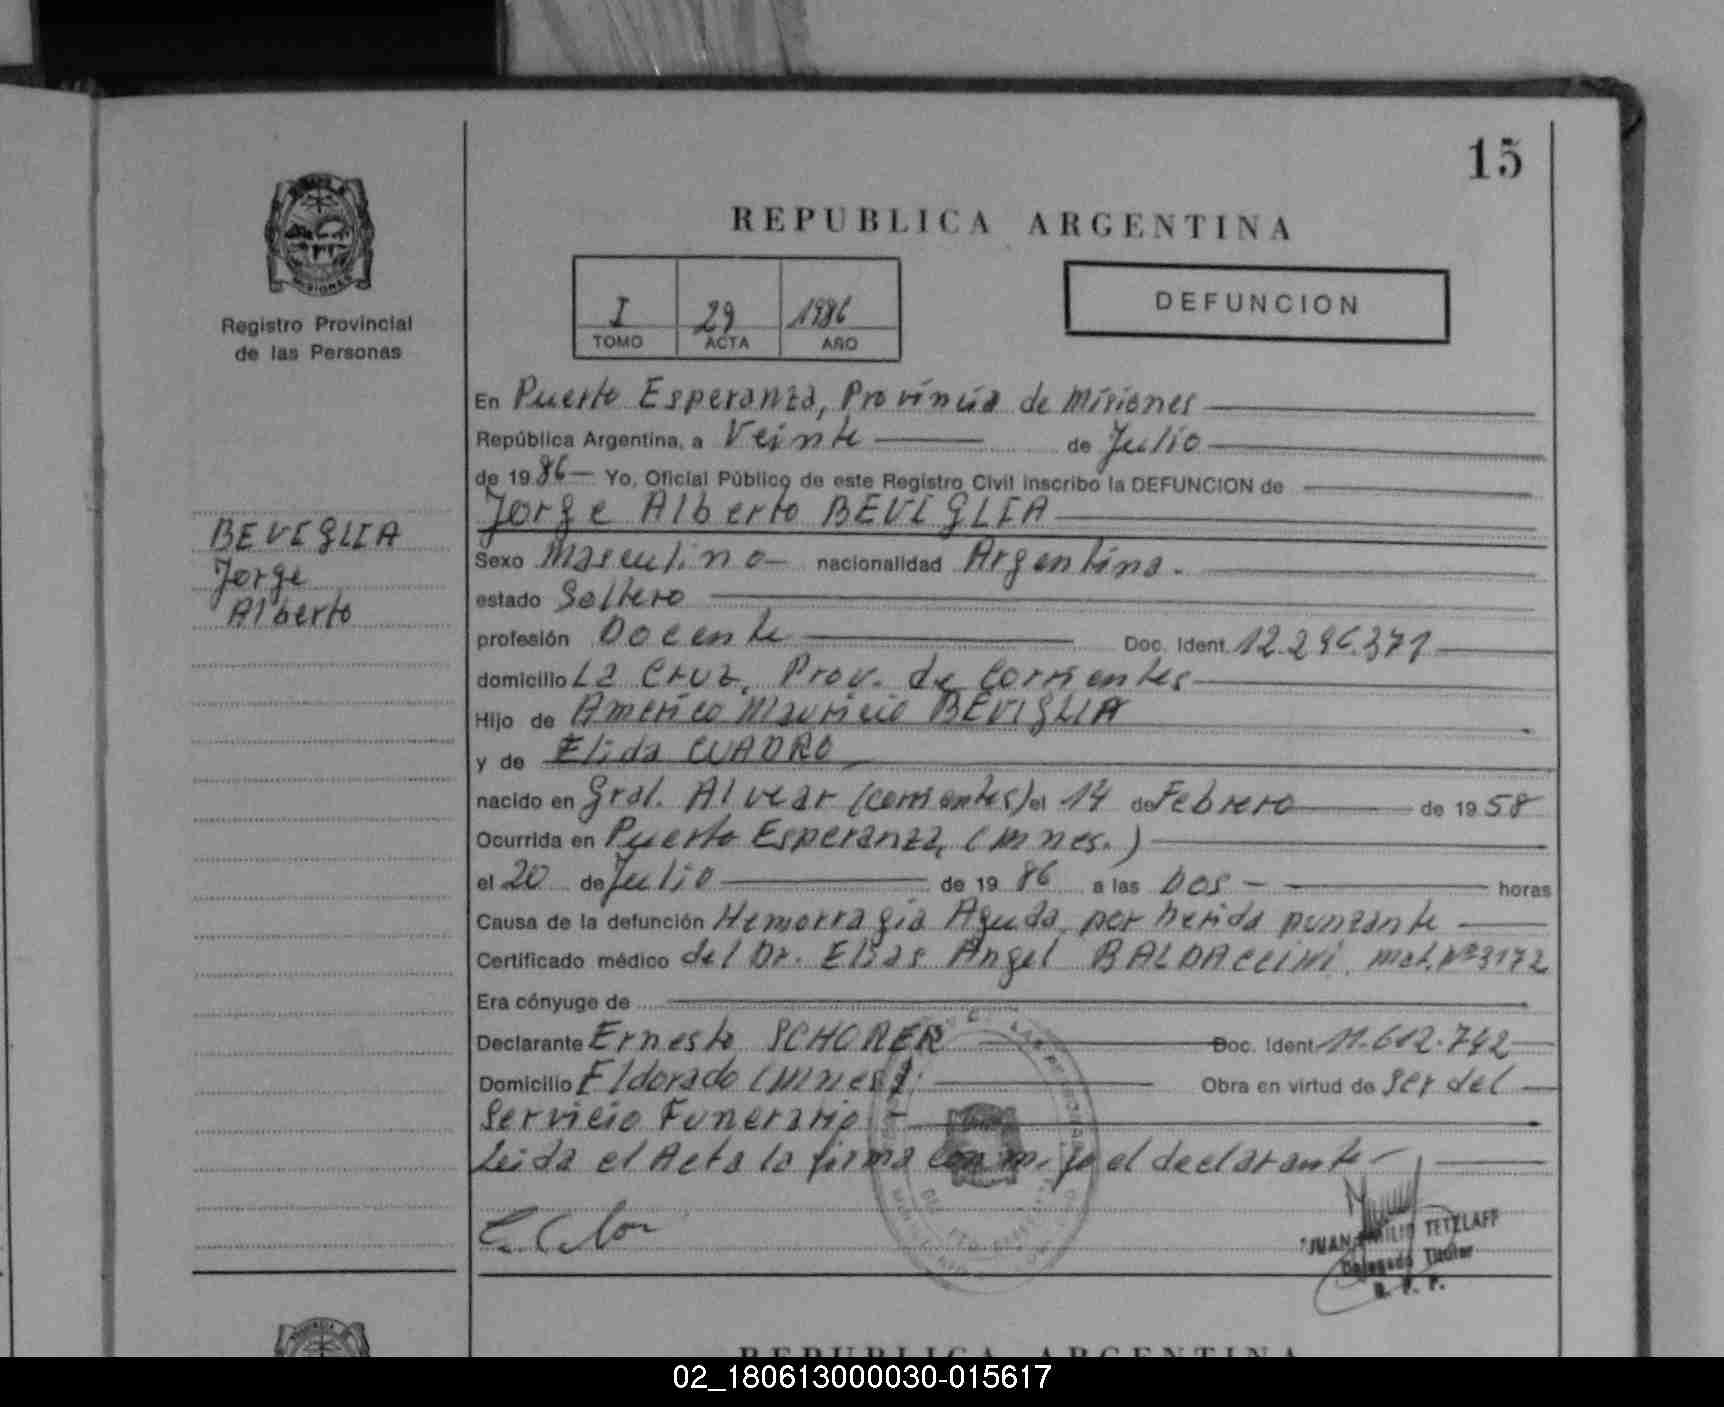 15
REPUBLICA ARGENTINA
MISIONES
Registro Provincial
de las Personas
I 29 1986
TOMO ACTA AÑO
DEFUNCION
BEVIGLIA
Jorge
Alberto
En Puerto Esperanza, Provincia de Misiones
República Argentina, a Veinte de Julio
de 1986 Yo, Oficial Público de este Registro Civil inscribo la DEFUNCION de
Jorge Alberto BEVIGLIA
Sexo Masculino nacionalidad Argentina.
estado Soltero
profesión Docente Doc. Ident. 12.296.371
domicilio La Cruz, Prov. de Corrientes
Hijo de Américo Mauricio BEVIGLIA
y de Elida CUADRO
nacido en Gral. Alvear (Corrientes) el 14 de Febrero de 1958
Ocurrida en Puerto Esperanza, (Mnes.)
el 20 de Julio de 1986 a las Dos horas
Causa de la defunción Hemorragia Aguda por herida punzante
Certificado médico del Dr. Elias Angel BALDACCINI, mat. Nº 3172
Era cónyuge de
Declarante Ernesto SCHORER Doc. Ident. 11.612.742
Domicilio Eldorado (Mnes). Obra en virtud de ser del
Servicio Funerario
Leida el Acta la firma conmigo el declarante
JUAN EMILIO TETZLAFF
Delegado Titular
R. P. P.
REPUBLICA ARGENTINA
02_180613000030-015617